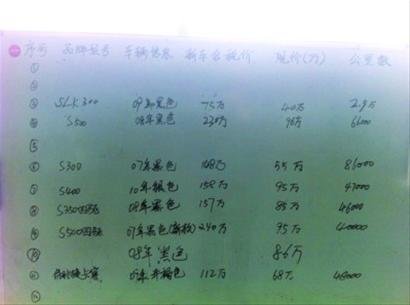 序号 品牌型号 车辆信息 新车含税价 现价(万) 公里数
①
②
③ SLK300 09年 色 75万 40万 2.9万
④ S500 08年黑色 230万 98万 6000
⑤
⑥ S300 07年黑色 148万 55万 86000
⑦ S400 10年银色 158万 95万 47000
⑧ S350四驱 08年黑色 157万 85万 46000
⑨ S500四驱 07年黑色 240万 95万 40000
⑩ 08年黑色 86万
⑪ 保时捷卡宴 09年 色 112万 68万 48000